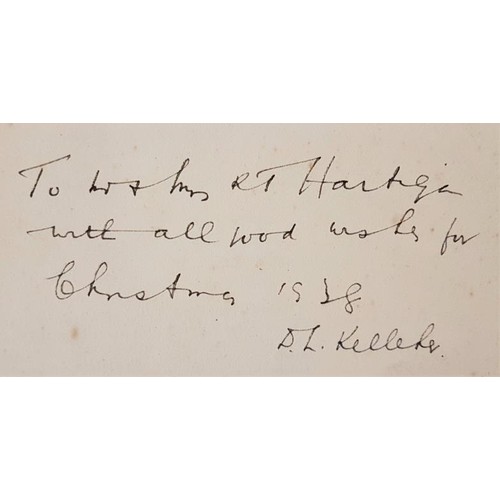 To Mr & Mrs R T Hartigan
with all good wishes for
Christmas 1928
D.L. Kelleher.